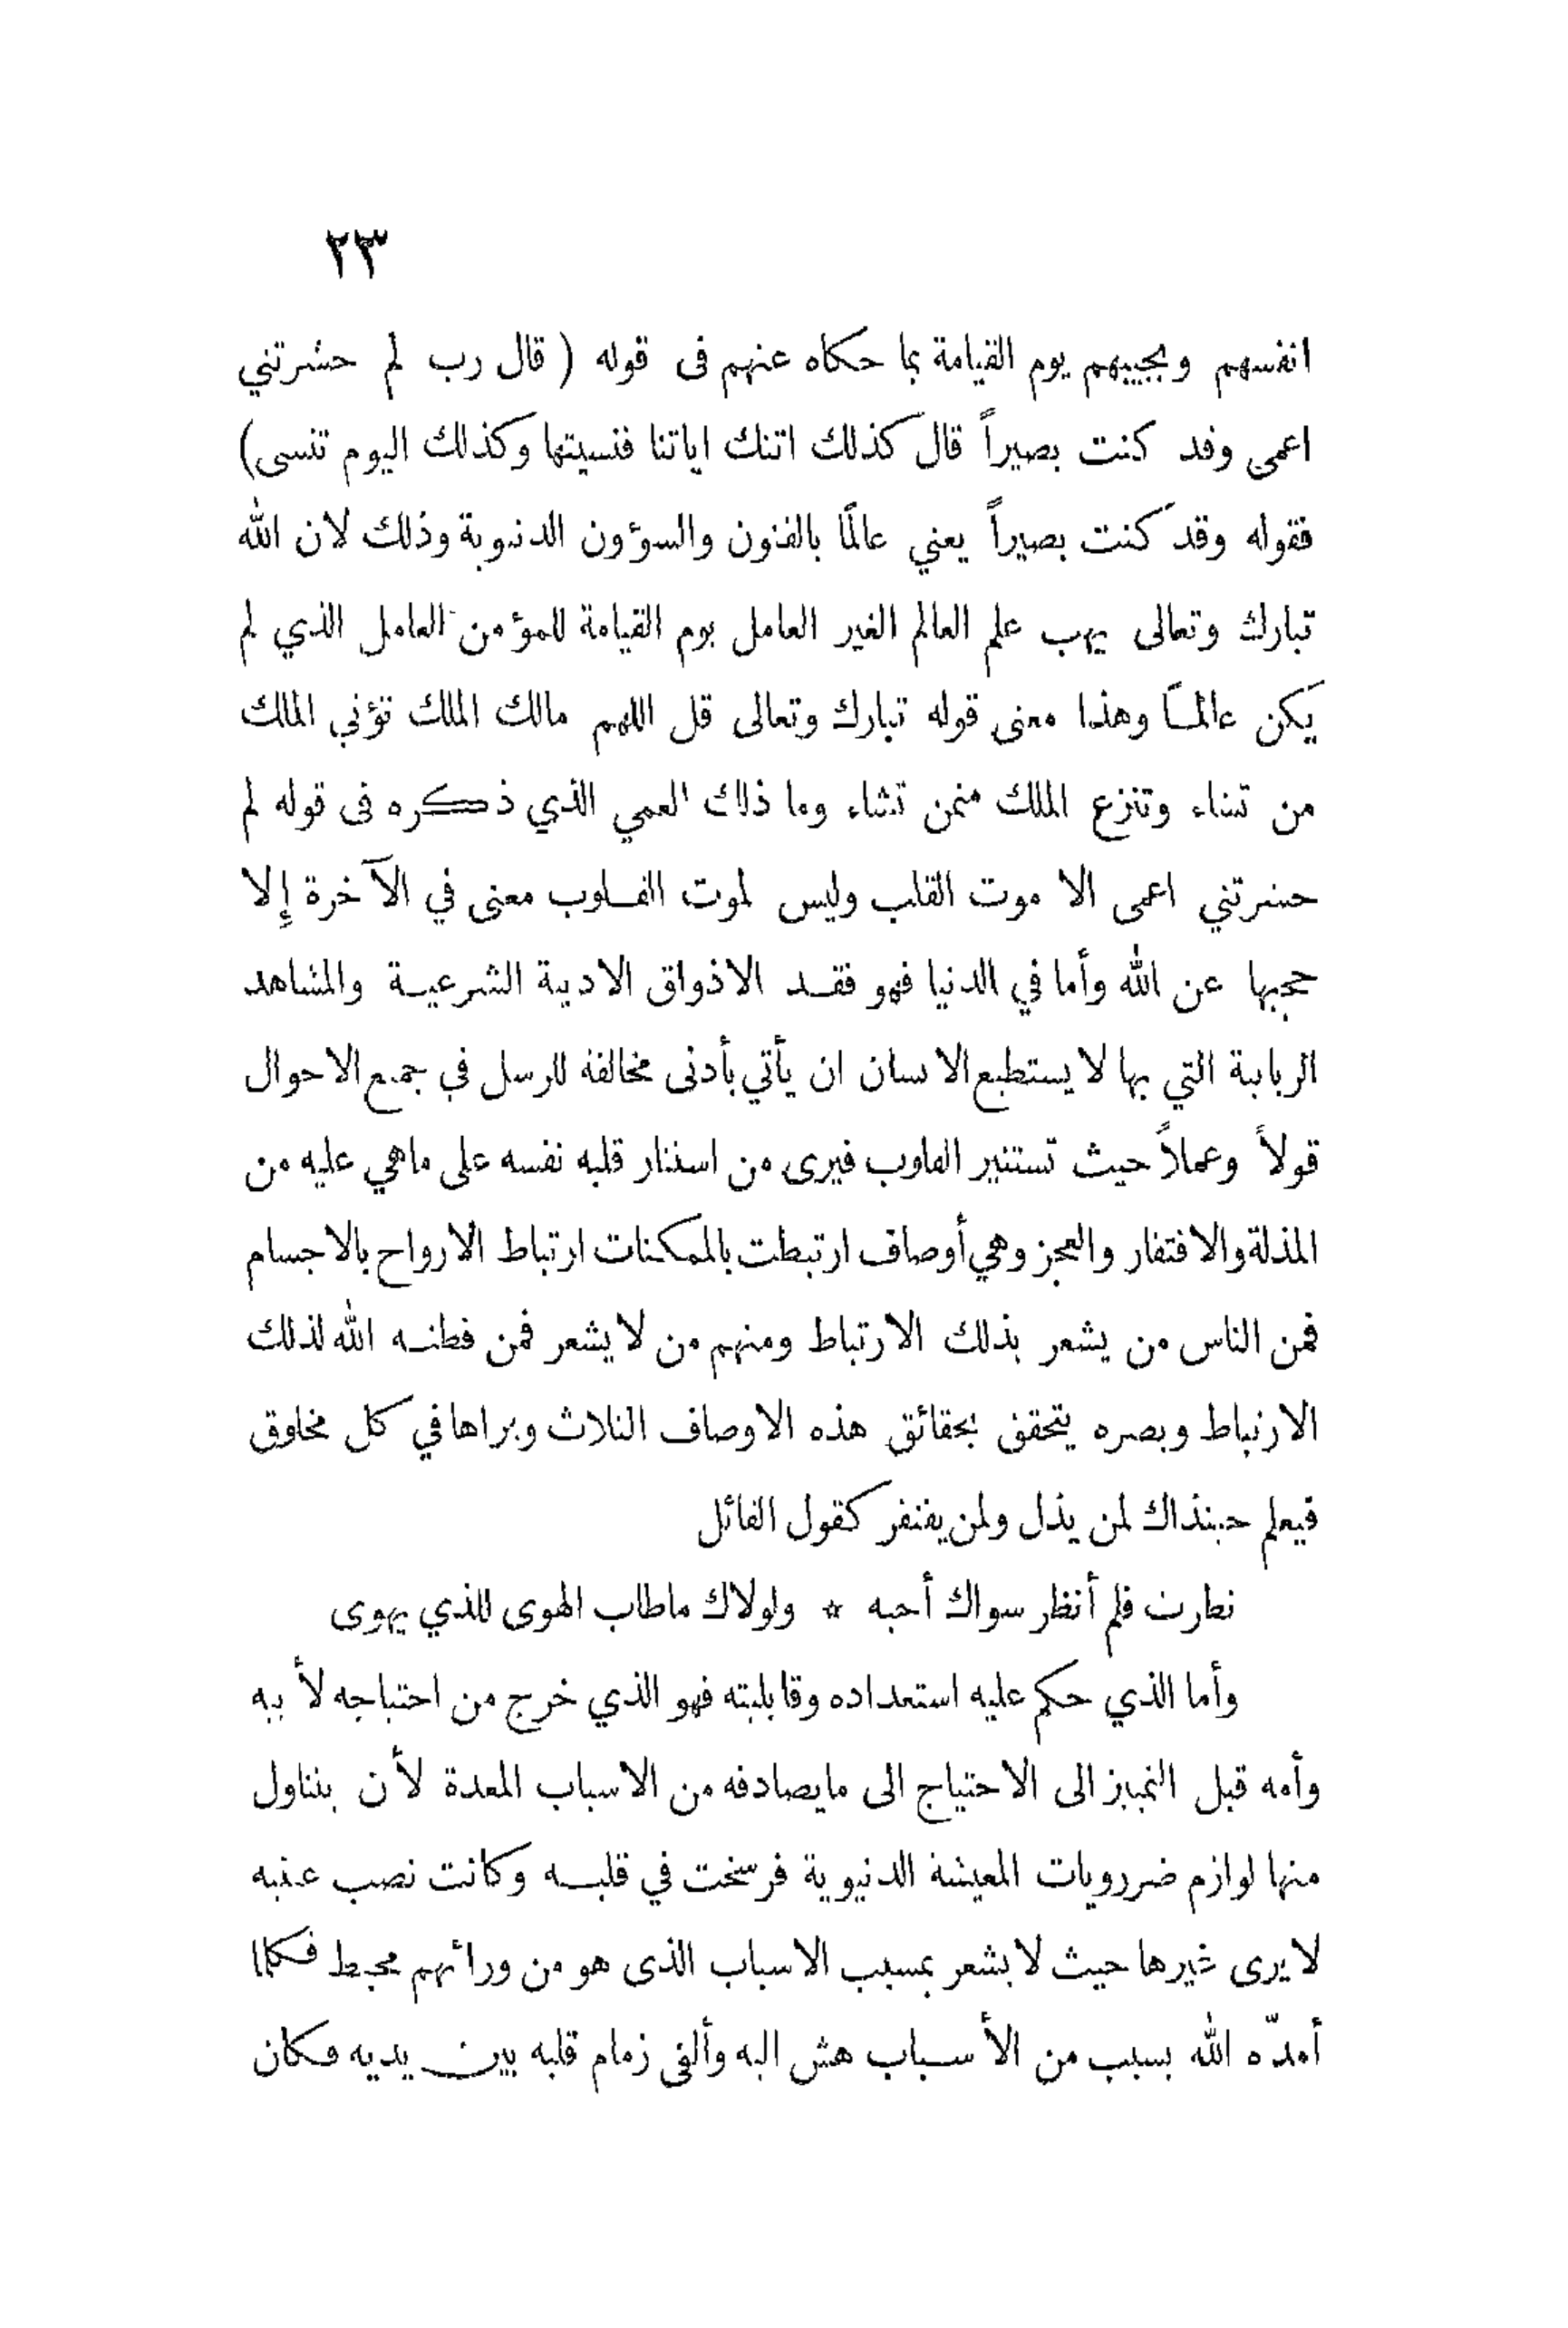 ٢٣
انفسهم ويجيبهم يوم القيامة بما حكاه عنهم فى قوله ( قال رب لم حشرتني
اعمى وقد كنت بصيراً قال كذلك اتتك اياتنا فنسيتها وكذلك اليوم تنسى)
فقوله وقد كنت بصيراً يعني عالمًا بالفنون والسؤون الدنيوية وذلك لان الله
تبارك وتعالى يهب علم العالم الغير العامل يوم القيامة للمؤمن العامل الذي لم
يكن عالمـًا وهذا معنى قوله تبارك وتعالى قل اللهم مالك الملك تؤتي الملك
من تشاء وتنزع الملك ممن تشاء وما ذلك العمي الذي ذكره فى قوله لم
حشرتني اعمى الا موت القلب وليس لموت القلوب معنى في الآخرة إلا
حجبها عن الله وأما في الدنيا فهو فقد الاذواق الادبية الشرعية والمشاهد
الربانية التي بها لا يستطيع الانسان ان يأتي بأدنى مخالفة للرسل في جميع الاحوال
قولاً وعملاً حيث تستنير القلوب فيرى من استنار قلبه نفسه على ماهي عليه من
المذلة والافتقار والعجز وهي أوصاف ارتبطت بالممكنات ارتباط الارواح بالاجسام
فمن الناس من يشعر بذلك الارتباط ومنهم من لا يشعر فمن فطنه الله لذلك
الارتباط وبصره يتحقق بحقائق هذه الاوصاف الثلاث ويراها في كل مخلوق
فيعلم حينذاك لمن يذل ولمن يفتقر كقول القائل
نظرت فلم أنظر سواك أحبه * ولولاك ماطاب الهوى للذي يهوى
وأما الذي حكم عليه استعداده وقابليته فهو الذي خرج من احتياجه لأبيه
وأمه قبل التمييز الى الاحتياج الى مايصادفه من الاسباب المعدة لأن يتناول
منها لوازم ضروريات المعيشة الدنيوية فرسخت في قلبه وكانت نصب عينيه
لا يرى غيرها حيث لا يشعر بمسبب الاسباب الذى هو من ورائهم محيط فكلما
أمدّه الله بسبب من الأسباب هش اليه وألقى زمام قلبه بين يديه فكان